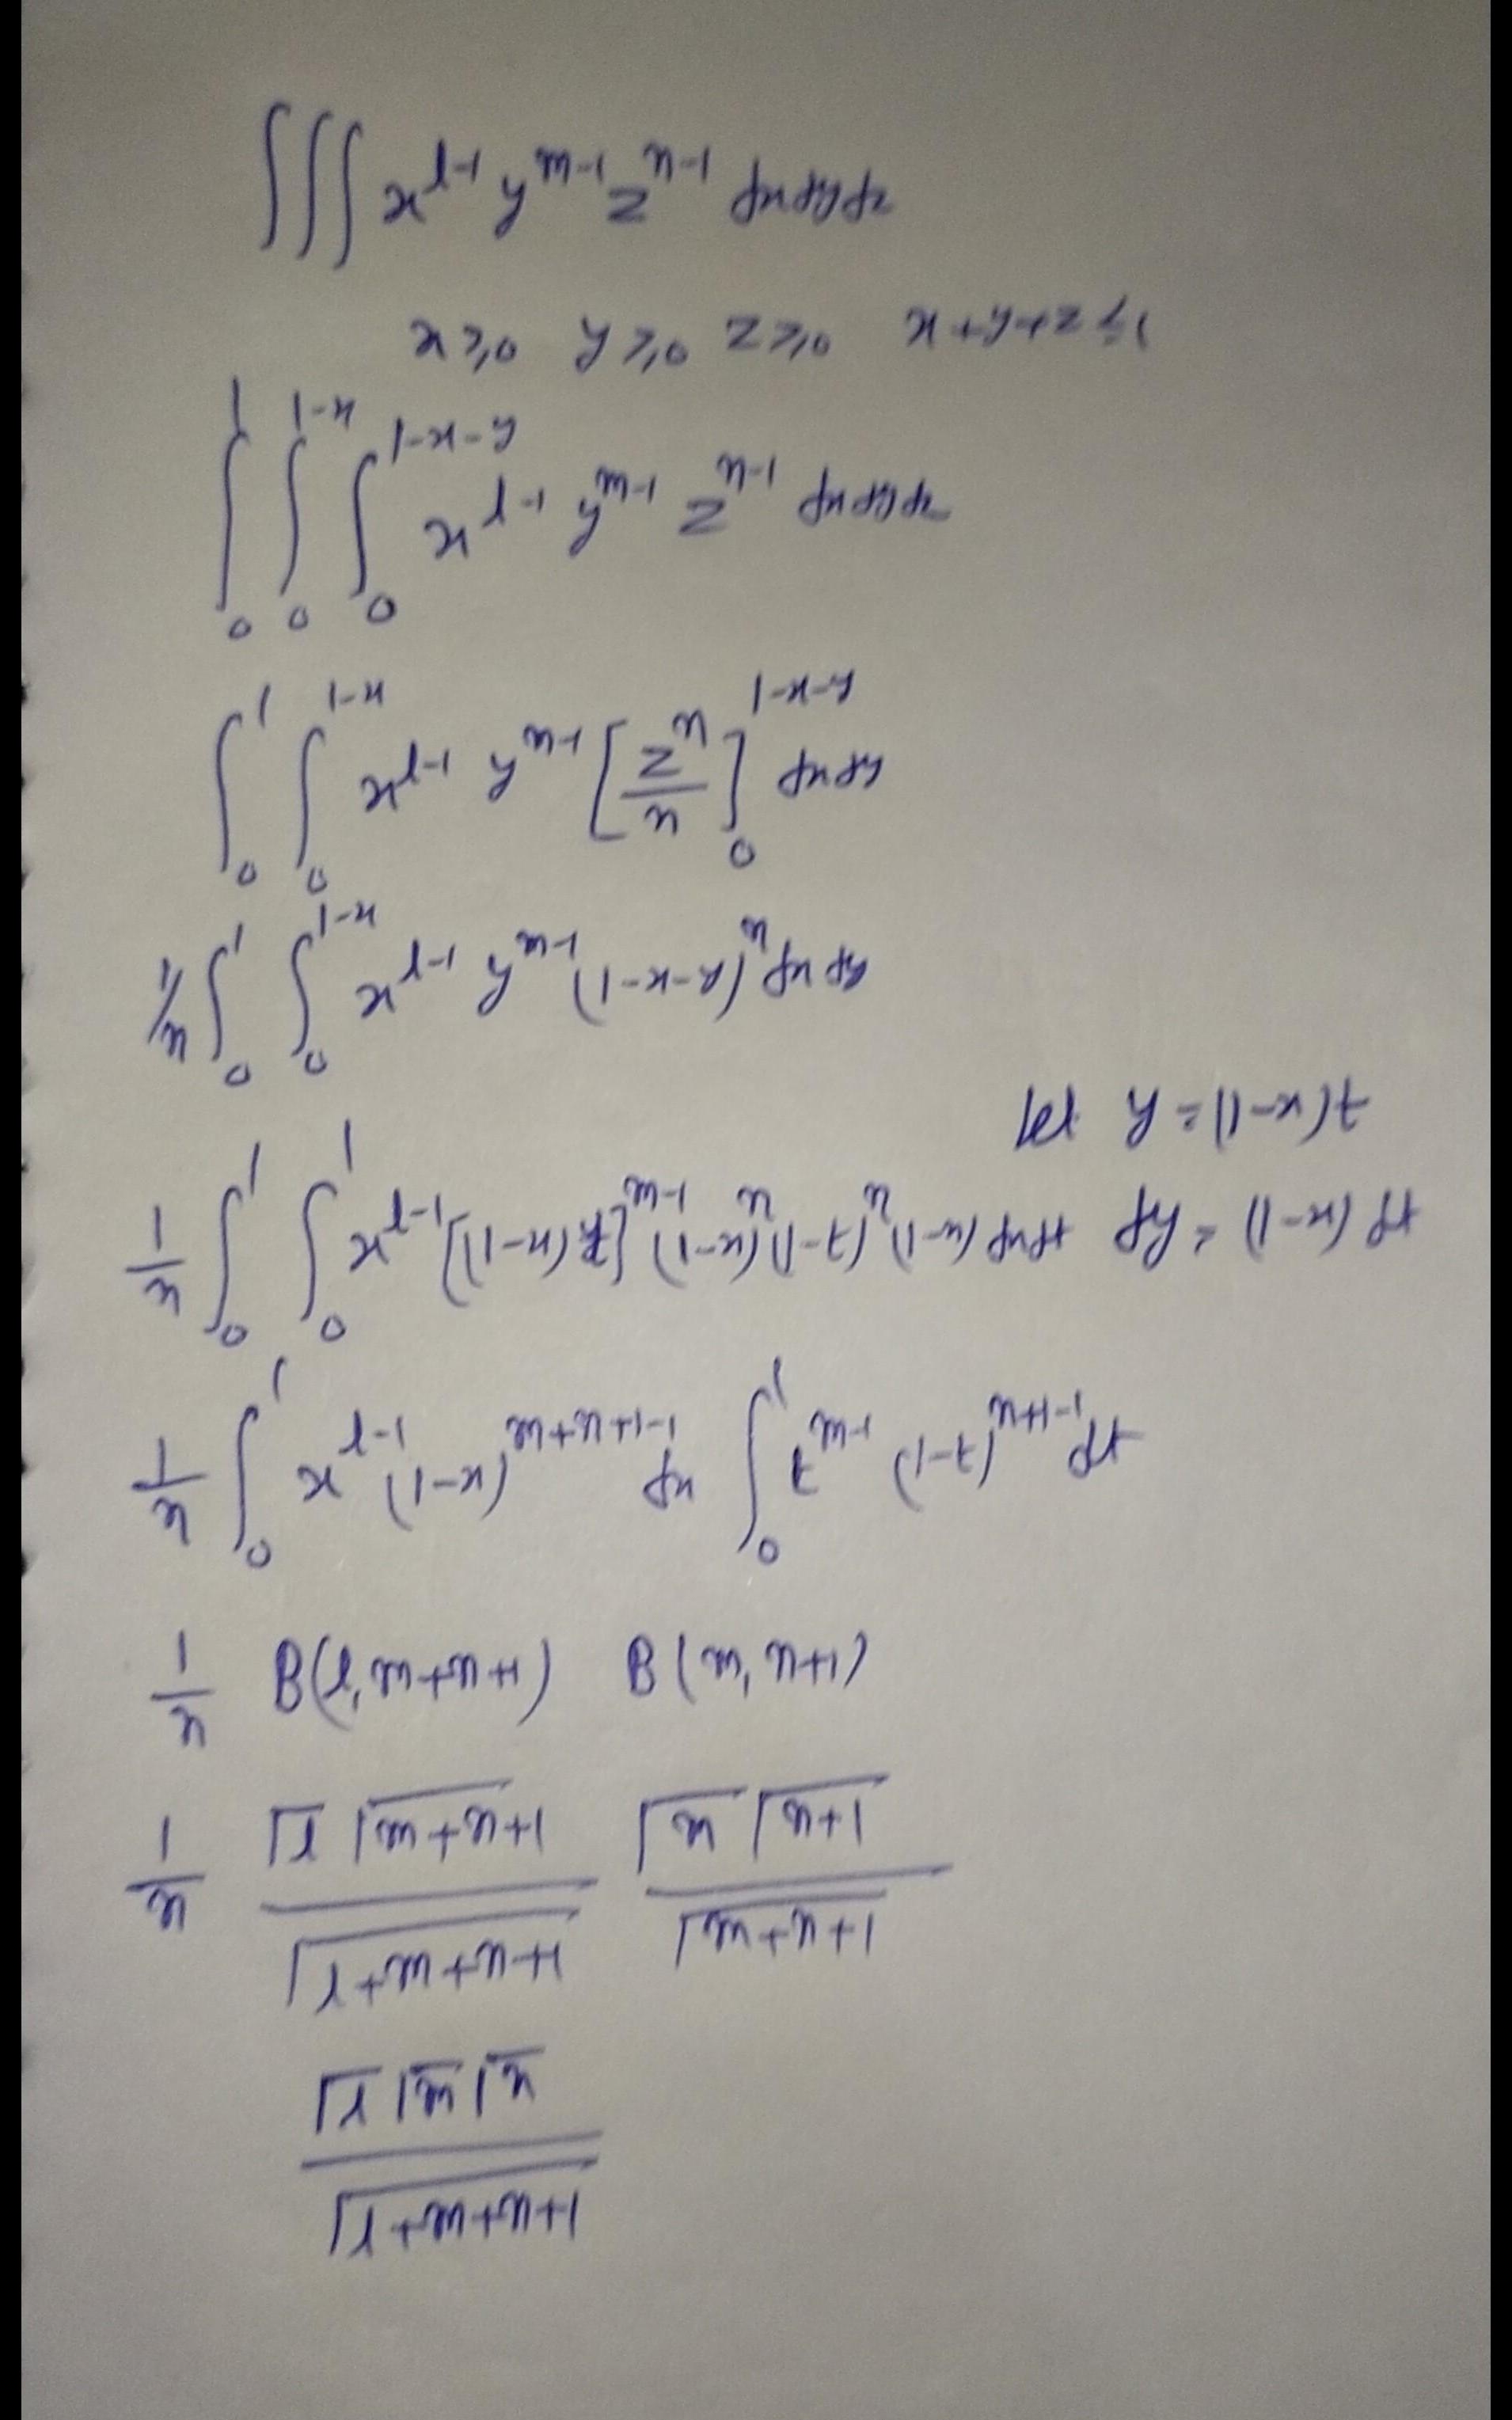 ∫∫∫ x^{l-1} y^{m-1} z^{n-1} dx dy dz
x ≥ 0 y ≥ 0 z ≥ 0 x+y+z ≤ 1
∫_0^1 ∫_0^{1-x} ∫_0^{1-x-y} x^{l-1} y^{m-1} z^{n-1} dx dy dz
∫_0^1 ∫_0^{1-x} x^{l-1} y^{m-1} [z^n/n]_0^{1-x-y} dx dy
1/n ∫_0^1 ∫_0^{1-x} x^{l-1} y^{m-1} (1-x-y)^n dx dy
let y = (1-x)t
1/n ∫_0^1 ∫_0^1 x^{l-1} [(1-x)t]^{m-1} (1-x)^n (1-t)^n (1-x) dx dt dy = (1-x) dt
1/n ∫_0^1 x^{l-1} (1-x)^{m+n+1-1} dx ∫_0^1 t^{m-1} (1-t)^{n+1-1} dt
1/n B(l, m+n+1) B(m, n+1)
1/n (Γl Γm+n+1)/(Γl+m+n+1) (Γm Γn+1)/(Γm+n+1)
(Γl Γm Γn)/(Γl+m+n+1)